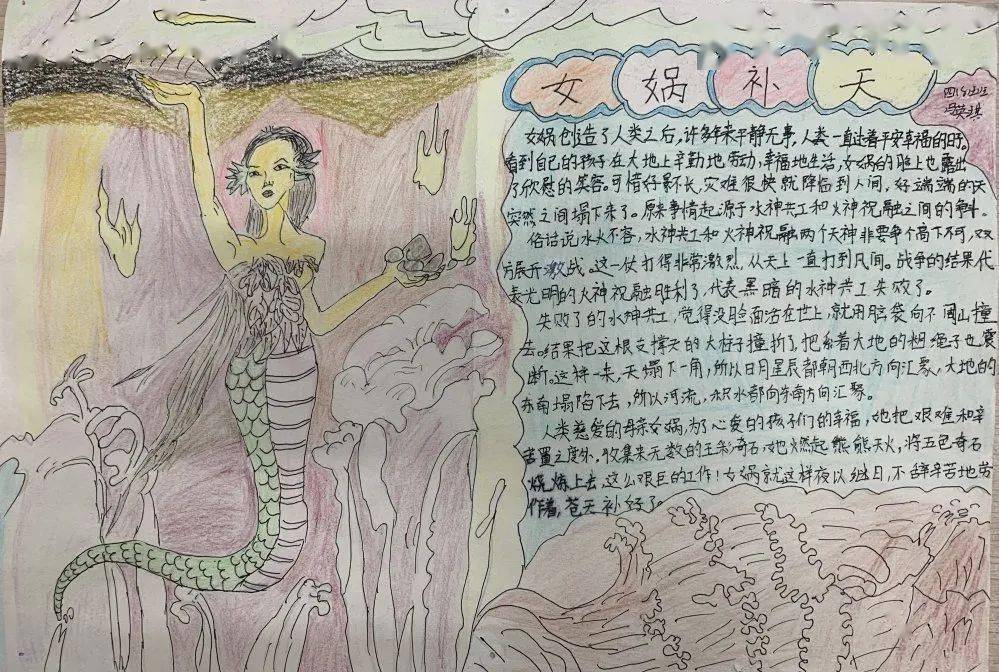 女娲补天
女娲创造了人类之后，许多年来平静无事，人类一直过着平安幸福的日子。
看到自己的孩子在大地上辛勤地劳动，幸福地生活，女娲的脸上也露出
了欣慰的笑容。可惜好景不长，灾难很快就降临到人间，好端端的天
突然之间塌下来了。原来事情起源于水神共工和火神祝融之间的争斗。
俗话说水火不容，水神共工和火神祝融两个天神非要争个高下不可，双
方展开激战。这一仗打得非常激烈，从天上一直打到凡间。战争的结果代
表光明的火神祝融胜利了，代表黑暗的水神共工失败了。
失败了的水神共工，觉得没脸面活在世上，就用脑袋向不周山撞
去。结果把这根支撑天的大柱子撞折了，把系着大地的粗绳子也震
断。这样一来，天塌下一角，所以日月星辰都朝西北方向汇聚，大地的
东南塌陷下去，所以河流，积水都向东南方向汇聚。
人类慈爱的母亲女娲，为了心爱的孩子们的幸福，她把艰难和辛
苦置之度外。收集来无数的玉和奇石，她燃起熊熊天火，将五色奇石
烧炼上去，这么艰巨的工作！女娲就这样夜以继日，不辞辛苦地劳
作着，苍天补好了。